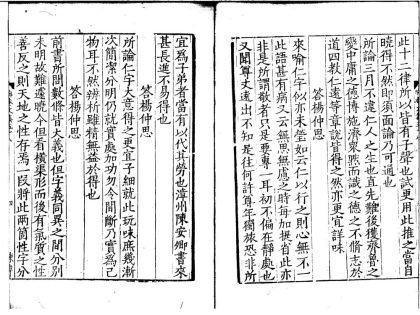 此十二律所以皆有子聲也試更用此推之當自
曉得不然即須面論乃可通也
所論三月不違仁人之生也直先難後獲齊魯之
變中庸之德博施濟衆默而識之德之不脩志於
道四教仁遠等章説皆得之然亦更宜詳味
荅楊仲思
來喻仁字似亦未瑩如云仁以行之則心無不一
此語甚有病又云無思無慮之時每加提省此亦
非是所謂敬者只是要專一耳初不偏在靜處也
又聞尊丈遠出不知是往何許尊年獨旅恐非所
宜爲子弟者當有以代其勞也漳州陳安卿書來
甚長進不易得也
荅楊仲思
所論仁字大意得之更宜子細就此玩味庶幾漸
次簡潔分明仍就實處加功勿令間斷乃實爲己
物耳不然辨析雖精無益於得也
荅楊仲思
前書所問數條皆大義也但字義同異之間分別
未明故難遽曉今但看横渠形而後有氣質之性
善反之則天地之性存焉一段將此兩箇性字分